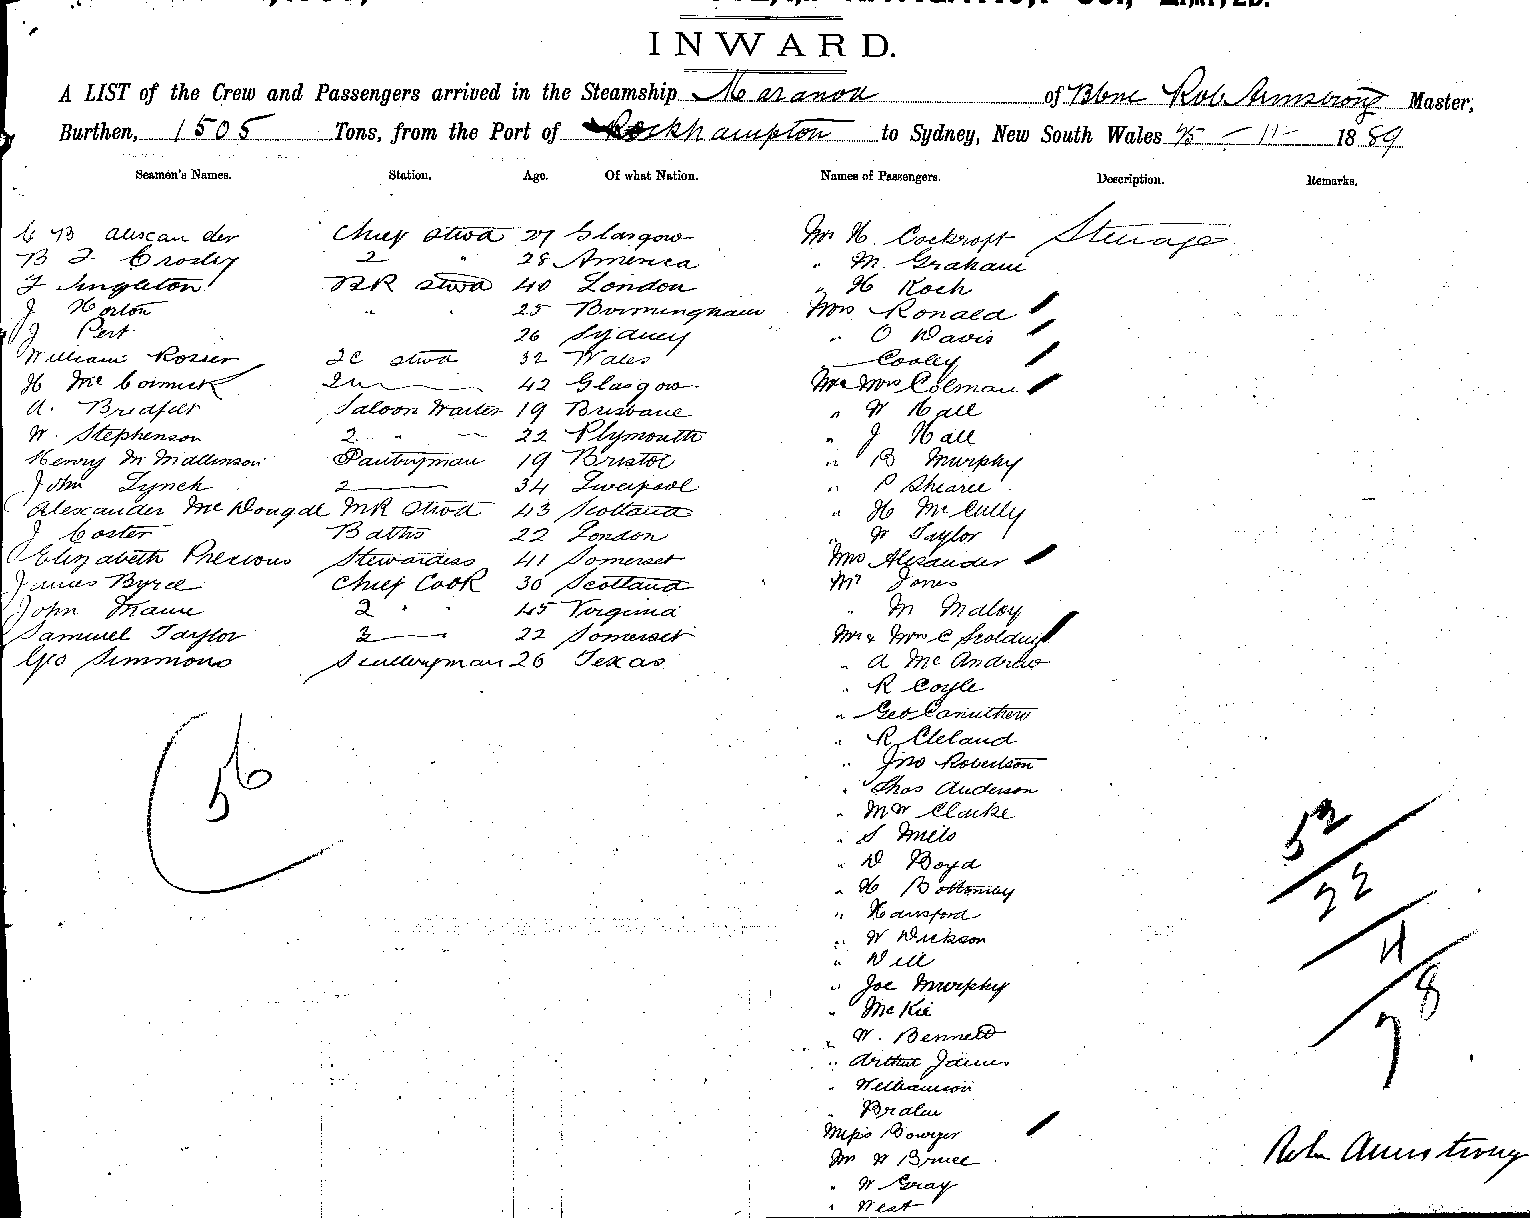 INWARD.
A LIST of the Crew and Passengers arrived in the Steamship Maranoa of B'bne Rob Armstrong Master,
Burthen, 1505 Tons, from the Port of Rockhampton to Sydney, New South Wales 25 - 11 - 1889
Seamen's Names. Station. Age. Of what Nation. Names of Passengers. Description. Remarks.
C B Alexander Chief Stwd 27 Glasgow Mr H. Cockroft Steerage
B F Crosby 2 " 28 America " M. Graham
F Singleton BR Stwd 40 London " H Koch
J Horton " " 25 Birmingham Mrs Ronald
J Pert 26 Sydney " O Davis
William Rosser 2C Stwd 32 Wales Cooley
H McCormick 2 42 Glasgow Mr Mrs Colman
A. Bredfelt Saloon Waiter 19 Brisbane " W Hall
W. Stephenson 2 " 22 Plymouth " J Hall
Henry M Mallinson Pantryman 19 Bristol " B Murphy
John Lynch 2 34 Liverpool " P Shearer
Alexander McDougal MR Stwd 43 Scotland " H McCully
J Coster Baths 22 London " W Taylor
Elizabeth Precious Stewardess 41 Somerset Mrs Alexander
James Byrd Chief Cook 30 Scotland Mr Jones
John 2 " " 45 Virginia " M Maloy
Samuel Taylor 3 22 Somerset Mr & Mrs C
Geo Simmons Sculleryman 26 Texas " A McAndrew
" R Coyle
" Geo Carruthers
" R Cleland
" Jno Robertson
" Thos Anderson
" M W Clarke
56
" S Mills
52
" D Boyd
22
" H Bottomley
" Hansford
4
" W Dickson
" Dill
78
" Joe Murphy
" McKie
" W. Bennett
" Arthur James
" Williamson
"
Miss Bowyer
Mr W Bruce
Robn Armstrong
" W Gray
" West